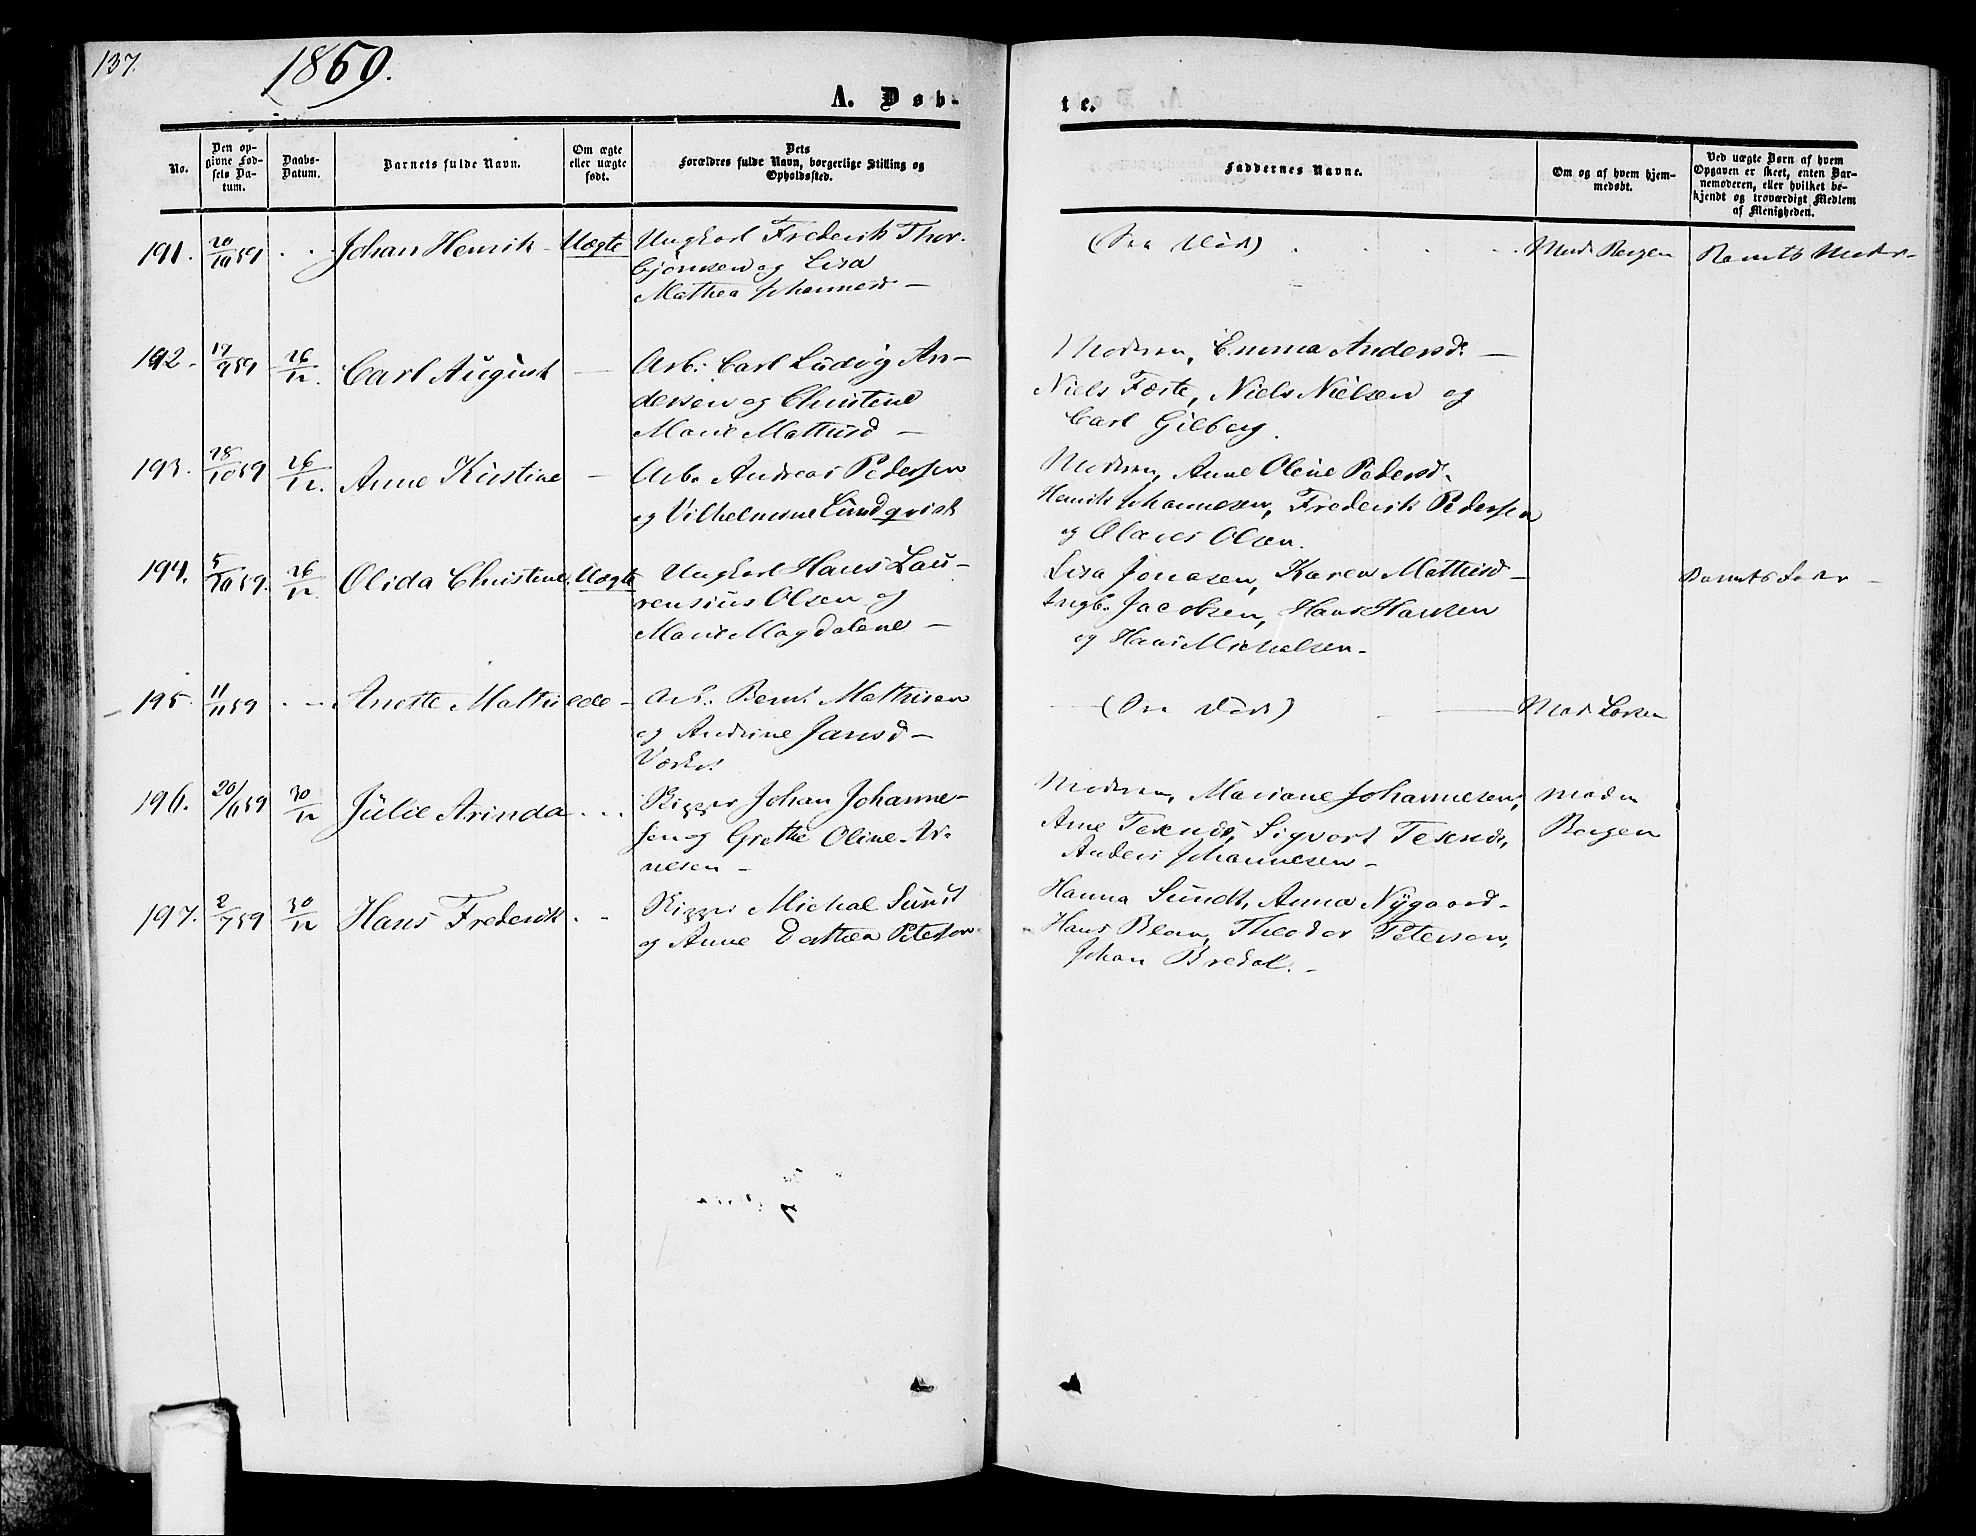 137.
1859.
A. Døb-
te.
No.
Den op-
givne Fød-
sels Da-
tum.
Daabs-
Datum.
Barnets fulde Navn.
Om ægte
eller uægte
født.
Dets
Forældres fulde Navn, borgerlige Stilling og
Opholdssted.
Faddernes Navne.
Om og af hvem hjem-
medøbt.
Ved uægte Børn af hvem
Opgaven er skeet, enten Bar-
nemoderen, eller hvilket be-
kjendt og troværdigt Medlem
af Menigheden.
191. 20/10 59 Johan Henrik - Uægte Ungkarl Frederik Thor-
bjørnsen og Lisa
Mathea Johannesd -
Mad. Bergen Barnets Moder -
192. 17/9 59 26/12. Carl August - Arb: Carl Ludvig An-
dersen og Christine
Marie Mathisd -
Modren, Emma Andersd. -
Niels Første, Niels Nielsen og
Carl Gilberg.
193. 28/10 59 26/12. Anne Kirstine - Arb. Andreas Pedersen
og Vilhelmine Lundqvist
Modren, Anne Oline Pedersd.
Henrik Johannesen, Frederik Pedersen
og Olaves Olsen.
194. 5/10 59. 26/12. Olida Christine. Uægte Ungkarl Hans Lau-
rensius Olsen og
Marie Magdalene -
Lisa Jonasen, Karen Mathisd -
Ingb. Jacobsen, Hans Hansen
og Hans Michelsen -
Barnets Fader -
195. 11/11 59 Anette Mathilde - Arb. Bernt Mathisen
og Andrine Jansd -
Værket
Mad. Larsen
196. 20/11 59 30/12 Julie Arinda Rigger Johan Johanne-
sen og Grethe Oline Ar-
nesen -
Modren, Mariane Johannesen,
Arne Texnds, Sigvart Texnds,
Anders Johannesen -
Madm
Bergen
197. 2/7 59 30/12 Hans Frederik. Rigger Michal Sundt
og Anne Dorthea Petersen
Hanna Sundt, Anna Nygaard -
Hans Bloen, Theodor Petersen,
Johan Bredal. -